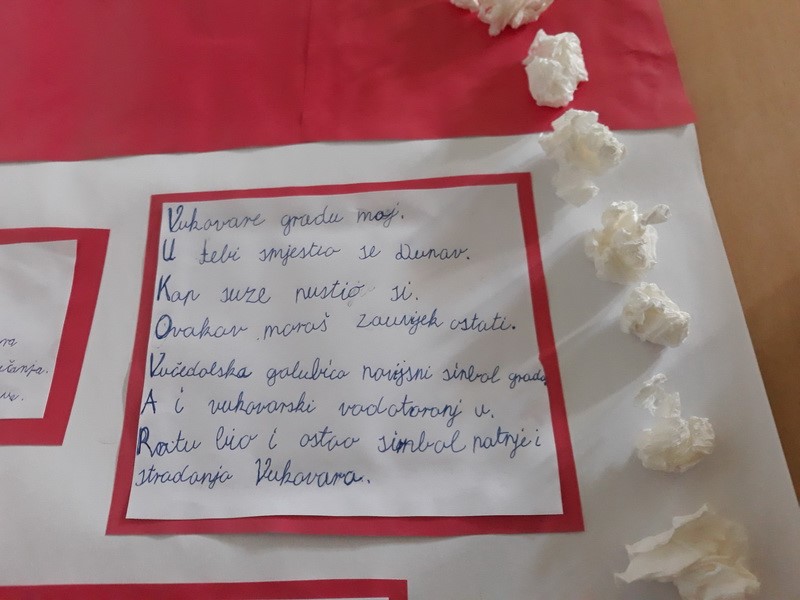 Vukovare gradu moj.
U tebi smjestio se Dunav.
Kap suze pustio si.
Ovakav moraš zauvijek ostati.
Vučedolska golubica povijsni simbol grada
A i vukovarski vodotoranj u.
Ratu bio i ostao simbol patnje i
stradanja Vukovara.